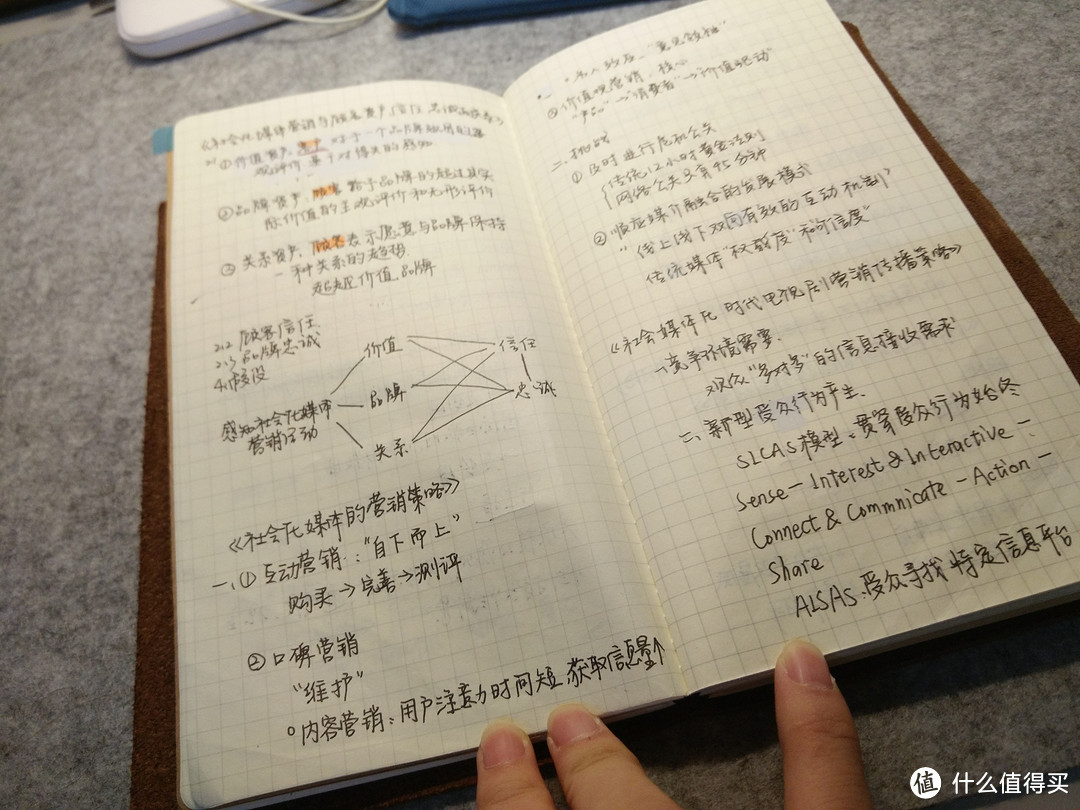 《社会化媒体营销与顾客资产、信任、忠诚的
2.1 ①价值资产 对于一个品牌
观评价 基于对得失的感知
②品牌资产 顾客 对于品牌的超过其实
际价值的主观评价和无形评价
③关系资产 顾客表示愿意与品牌保持
一种关系的趋势
超越价值、品牌
2.2 顾客信任
2.3 品牌忠诚
4. 假设
感知社会化媒体
营销活动
价值
品牌
关系
信任
忠诚
《社会化媒体的营销策略》
一、① 互动营销:“自下而上”
购买→完善→测评
② 口碑营销
“维护”
内容营销:用户注意力时间短,获取信息量个
“意见领袖”
③ 价值观营销,核心
“产品”→“消费者”→“价值驱动”
二、挑战
① 及时进行危机公关
传统12小时黄金法则
网络公关只有45分钟
② 顺应媒介融合的发展模式
“线上线下双向有效的互动机制”
传统媒体“权威度”和“可信度”
《社会媒体化时代电视剧营销传播策略》
一、竞争环境需要
观众“多对多”的信息接收需求
二、新型受众行为产生
SICAS模型:贯穿受众行为始终
Sense — Interest & Interactive —
Connect & Commnicate — Action —
Share
AISAS:受众寻找特定信息平台
值 什么值得买